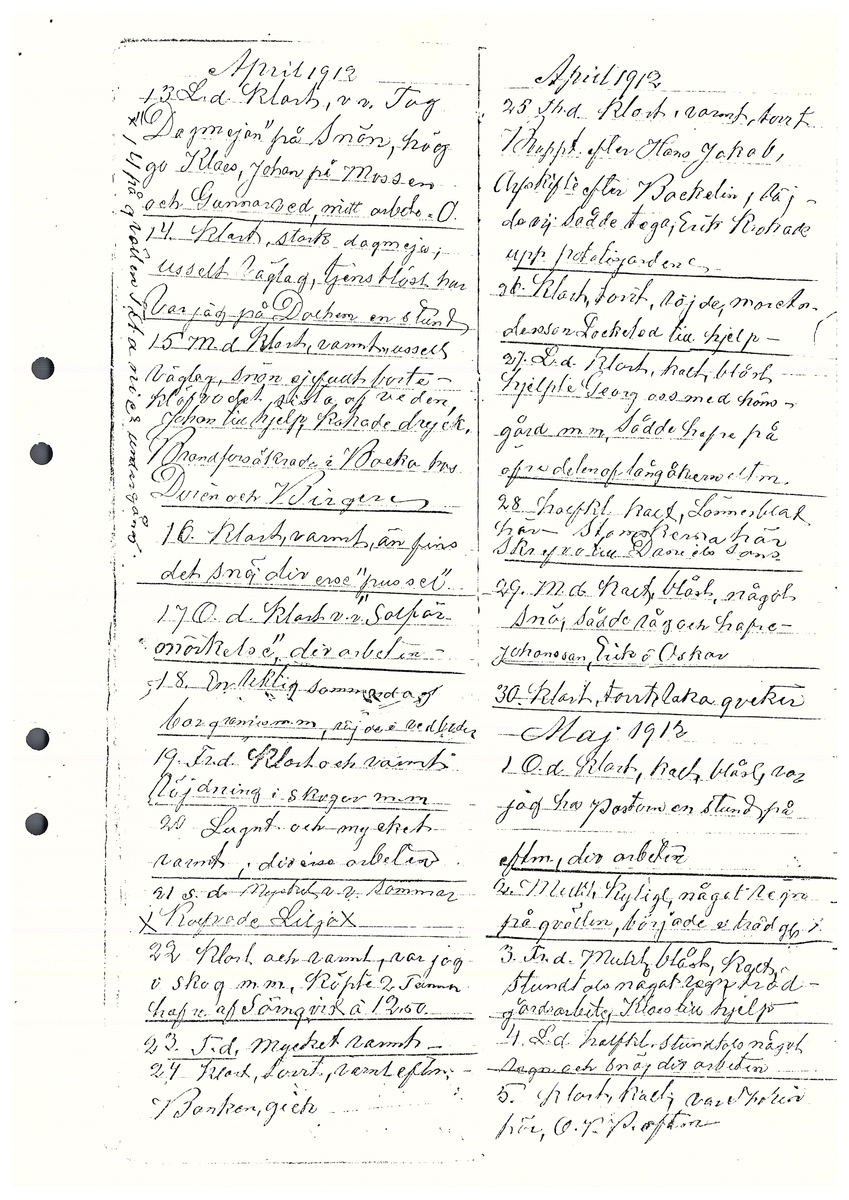 April 1912
13 L.d. Klart, v.v. Tog
"Dagmejan" på Snön, hög
go Klaes, Johan på Mossen
och Gunnarved, mitt arbete. O.
14. Klart, stark dagmeja,
usselt väglag, tjenstlöst har
var jag på Dochem en stund
15 M.d Klart, varmt, usselt
väglag, snön ej fullt borte -
klöfvedet, sista af veden,
Johan till hjelp, kokade dryck.
Brandförsäkrade i Backa hos
Doren och Birger
16. Klart, varmt, än fins
det snö, diverse "pussel".
17 O.d. Klart v.v. "Solför-
mörkelse", div arbeten -
18. En riktig sommardag
borgranis m.m, röjde i vedboder
19. Fr.d. Klart och varmt
Röjdning i skogor m m
20 Lugnt och mycket
varmt, diverse arbeten
21 s.d. Mycket v.v. Sommar
X Kalfvade Lilja X
22 Klart och varmt, var jag
i skog m.m, Köpte 2 Tunn
hafre af Sörnqvist à 12.00.
23. T.d. Mycket varmt -
24 Klart, torrt, varmt eftm.
Banken, gick
x 14 på qvällen Titanics undergång.
April 1912
25 Th.d. Klart, varmt, torrt
Khappt. efter Hans Jakob,
Arfskifte efter Backelin, röj-
de vi, sådde tega, Erik krokade
upp potatisgarden
26. Klart, torrt, röjde,
till hjelp -
27. L.d. Klart, kalt, blåst
hjelpte Georg oss med höns-
gård m m, sådde hafre på
öfre delen af långåkern eltm.
28 halfkl kalt, Lönnesblat
här -
Skrefvo till Daniels Sons
29. M.d. kalt, blåst, något
snö, sådde råg och hafre -
Johansson, Erik o Oskar
30. Klart, torrt, laka qvekir
Maj 1912
1 O.d. Klart, kalt, blåst, var
jag ho Pastorn en stund på
eftm, div arbeten
2. Mulit, kyligt, något regn
på qvällen, började v trädg
3. Fr.d. Mulit, blåst, kalt,
stundtals något regn träd-
gårdsarbete, Klaes till hjelp
4. L.d. halfkl. stundtals något
regn och snö, div arbeten
5. Klart, kalt, var
här, O.P.P. eftm